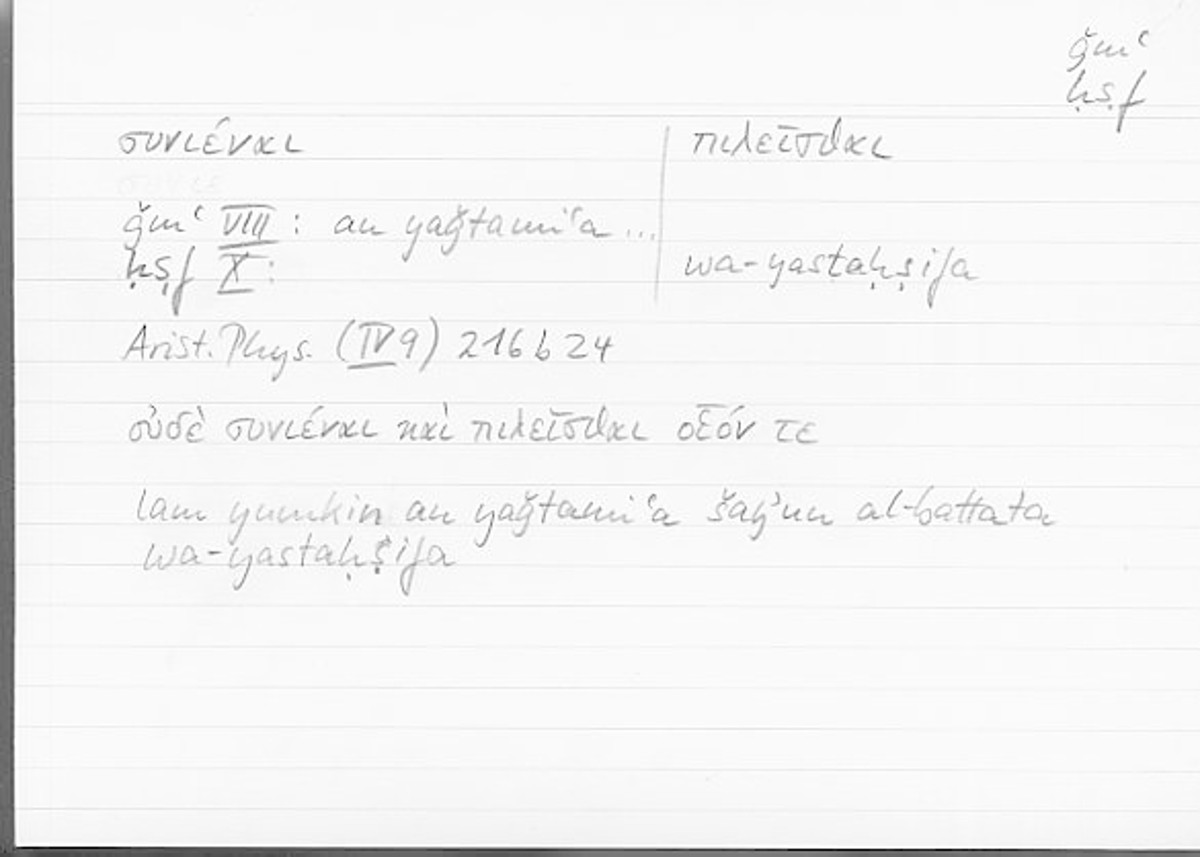 ǧmʿ
ḥṣf
συνιέναι | πιλεῖσθαι
ǧmʿ VIII : an yaǧtamiʿa ...
ḥṣf X : wa-yastaḥṣifa
Arist. Phys. (IV 9) 216 b 24
οὐδὲ συνιέναι καὶ πιλεῖσθαι οἷόν τε
lam yumkin an yaǧtamiʿa šayʾun al-battata
wa-yastaḥṣifa